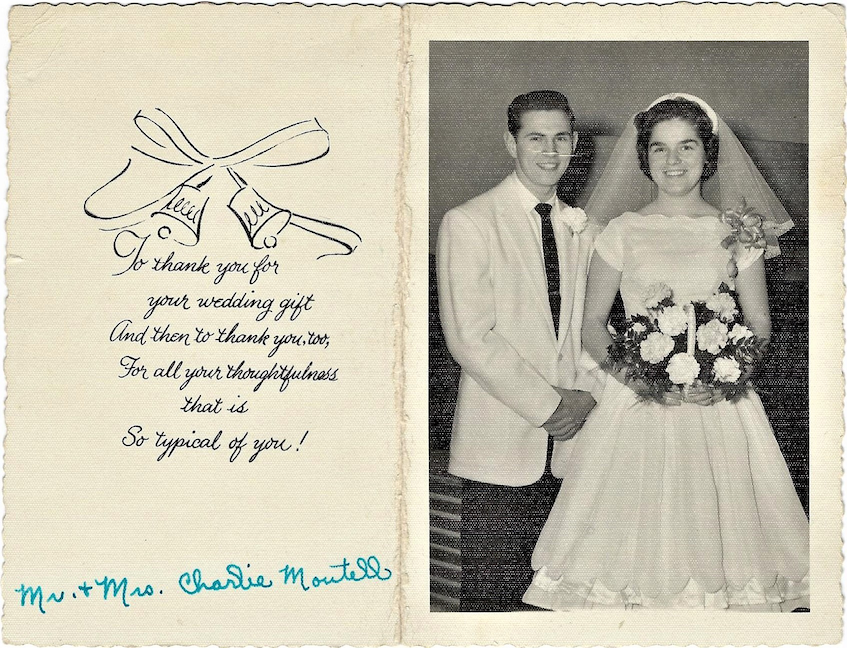 To thank you for
your wedding gift
And then to thank you, too,
For all your thoughtfulness
that is
So typical of you!
Mr. + Mrs. Charlie Montell